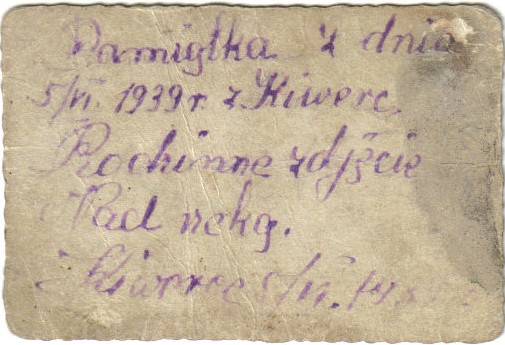 Pamiątka z dnia
5/VI. 1939 r. z Kiwerc.
Rodzinne zdjęcie
Nad rzeką.
Kiwerce 5/VI. 193